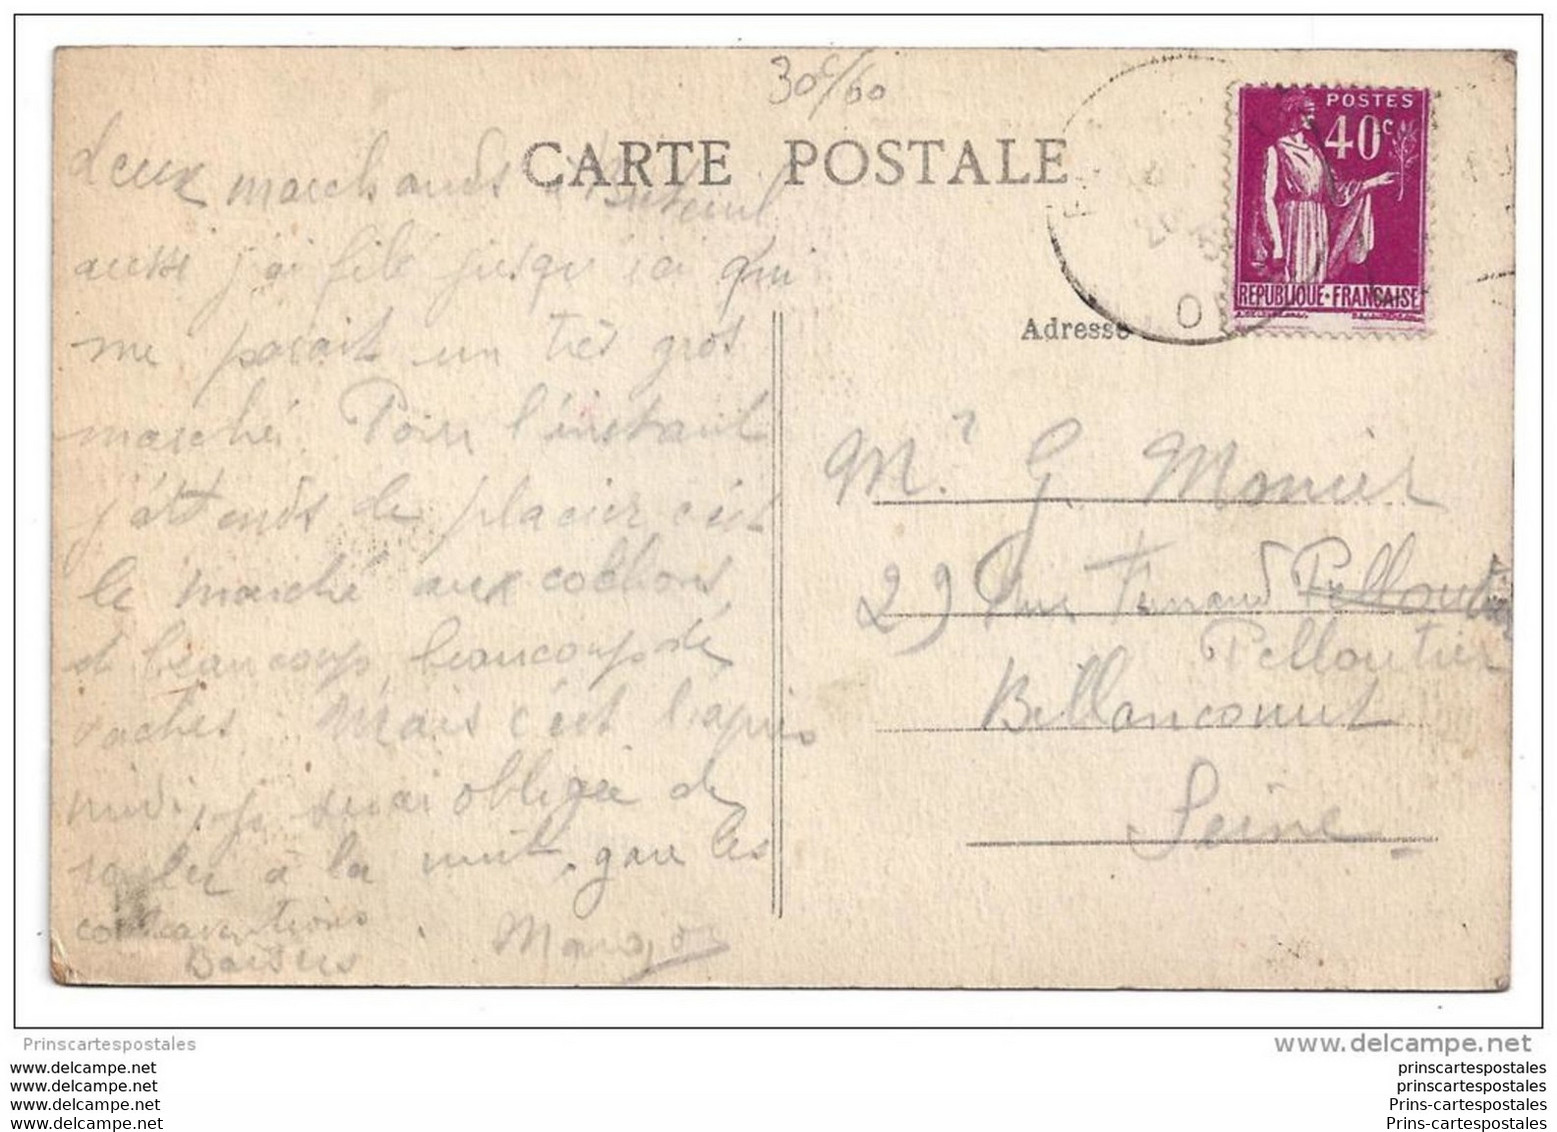 30c/60
CARTE POSTALE
POSTES
40c
REPUBLIQUE·FRANÇAISE
Adresse
deux marchands
aussi j'ai filé jusqu'ici qui
me parait un très gros
marché. Pour l'instant
j'attends de placier c'est
le marché aux cochons,
et beaucoup, beaucoup de
vaches. Mais c'est l'après
midi, je serai obligée de
rouler à la nuit, gare les
contraventions.
Baisers
Margot
Mr. G. Monier
29 Rue Fernand Pelloutier
Pelloutier
Billancourt
Seine
Prinscartespostales
www.delcampe.net
www.delcampe.net
www.delcampe.net
www.delcampe.net
www.delcampe.net
prinscartespostales
prinscartespostales
Prins-cartespostales
Prins-cartespostales